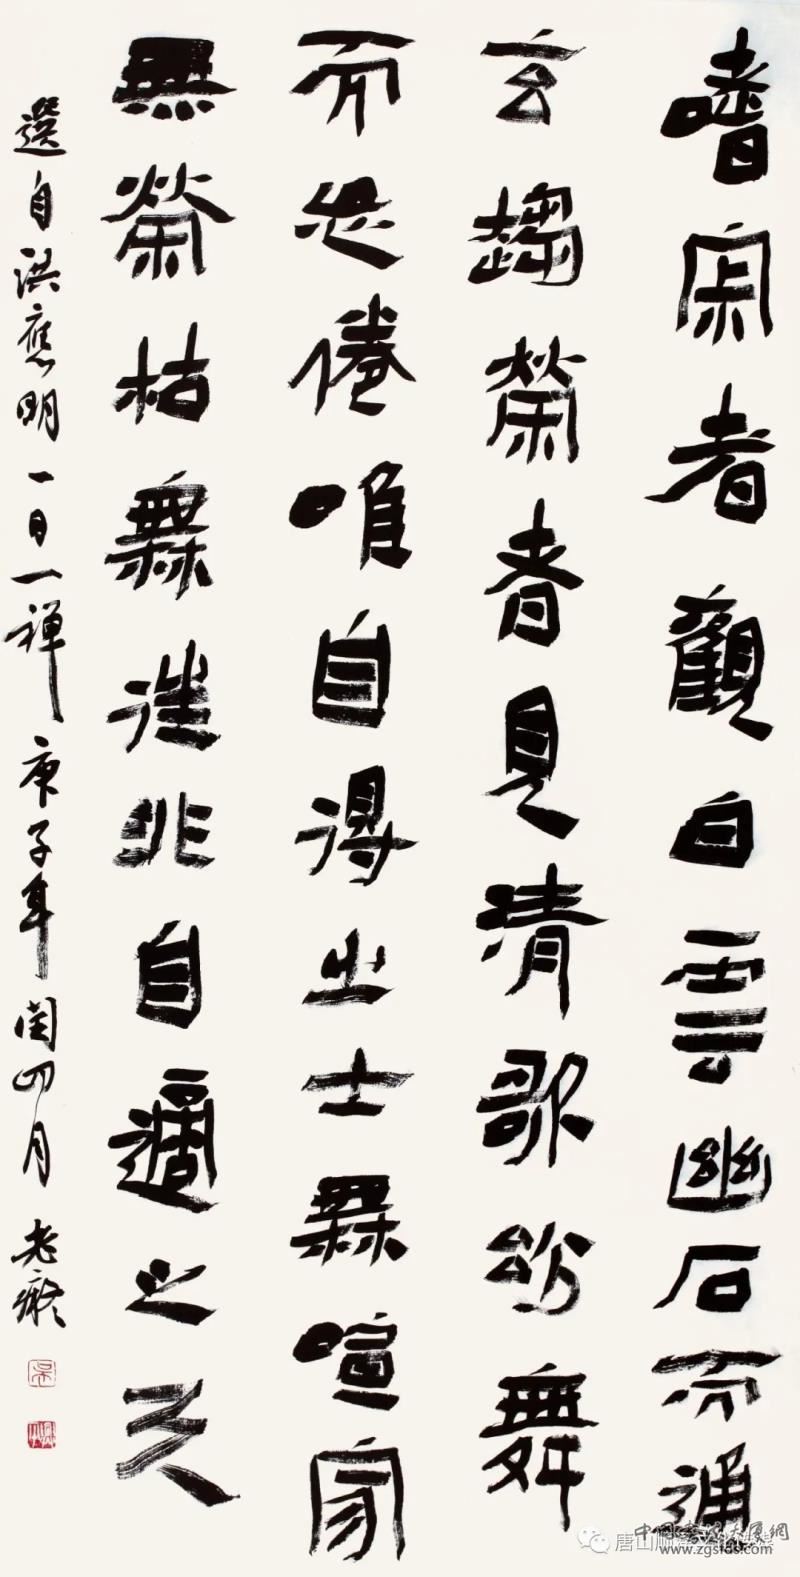 嗜寂者觀白雲幽石而通
玄趨榮者見清歌玅舞
而忘倦唯自得之士無喧寂
無榮枯無往非自適之天
選自洪應明一日一禪庚子年閏四月老癡
唐山
www.zgsfds.com